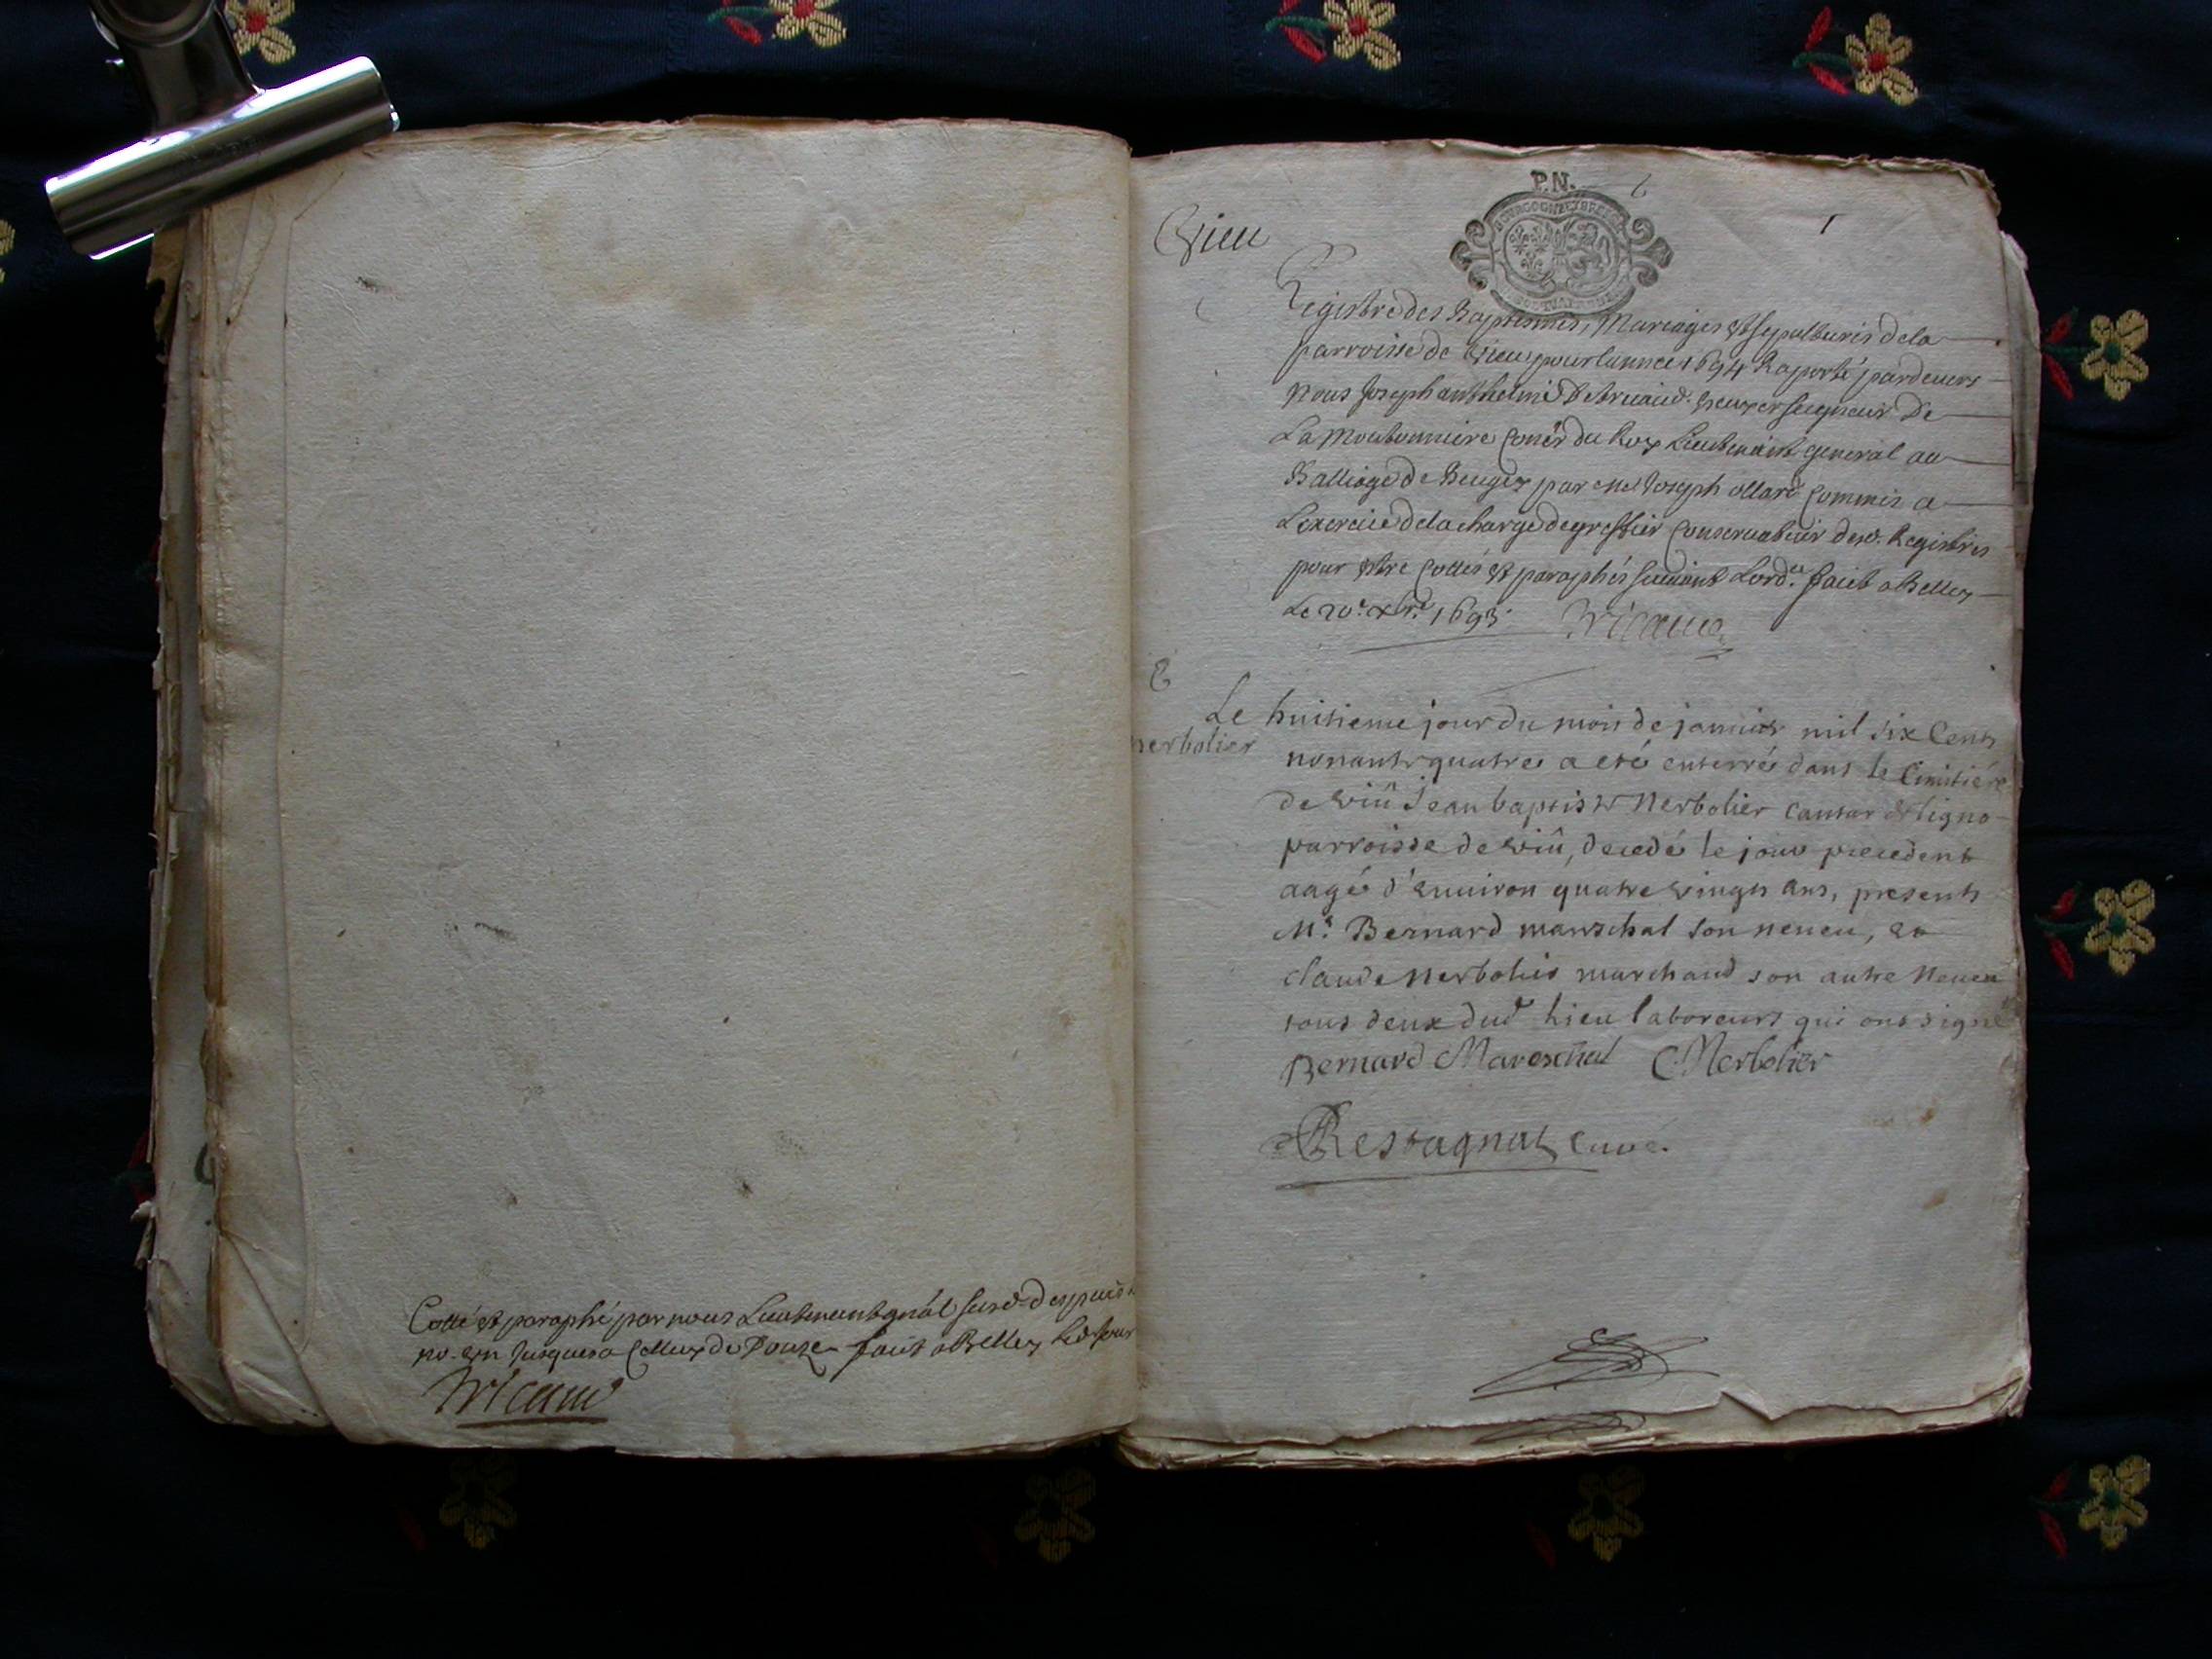 Cotté et paraphé par nous Lieutenant gnãl susd. despuis
no. un Jusques a Celluy de Douze faict a Belley led. Jour
P.N.
BOURGOGNE ET BRESSE
Vieu
1
Registre des Baptesmes, Mariages et sepultures de la
parroisse de Vieu pour lannee 1694 Raporté pardevers
Nous Joseph anthelme De seigneur De
La Moutonniere Coner du Roy Lieutenant general au
Balliage de Beugey par Me Joseph ollard Commis a
Lexercice de la charge de greffier Conservateur desd. Registres
pour estre Cottés et paraphés suivant Lord.ce faict a Belley
Le 20e xbre 1693
Le huitieme jour du mois de janvier mil six Cents
nerbolier
nonante quatre a eté enterré dans le Cimitiére
de viû Jean baptiste Nerbolier cantar de ligno
parroisse de viû, decedé le jour precedent
aagé d'environ quatre vingts ans, presents
Mr. Bernard mareschal son neveu, et
claude Nerbolier marchand son autre neveu
tous deux dud lieu laboreurs qui ont signé
Bernard Mareschal C. Nerbolier
Restagnat curé.